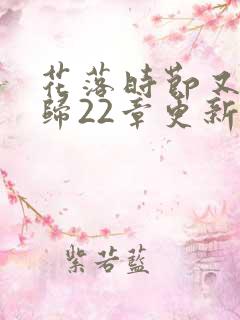 花落時節又
歸22章更新
紫若藍